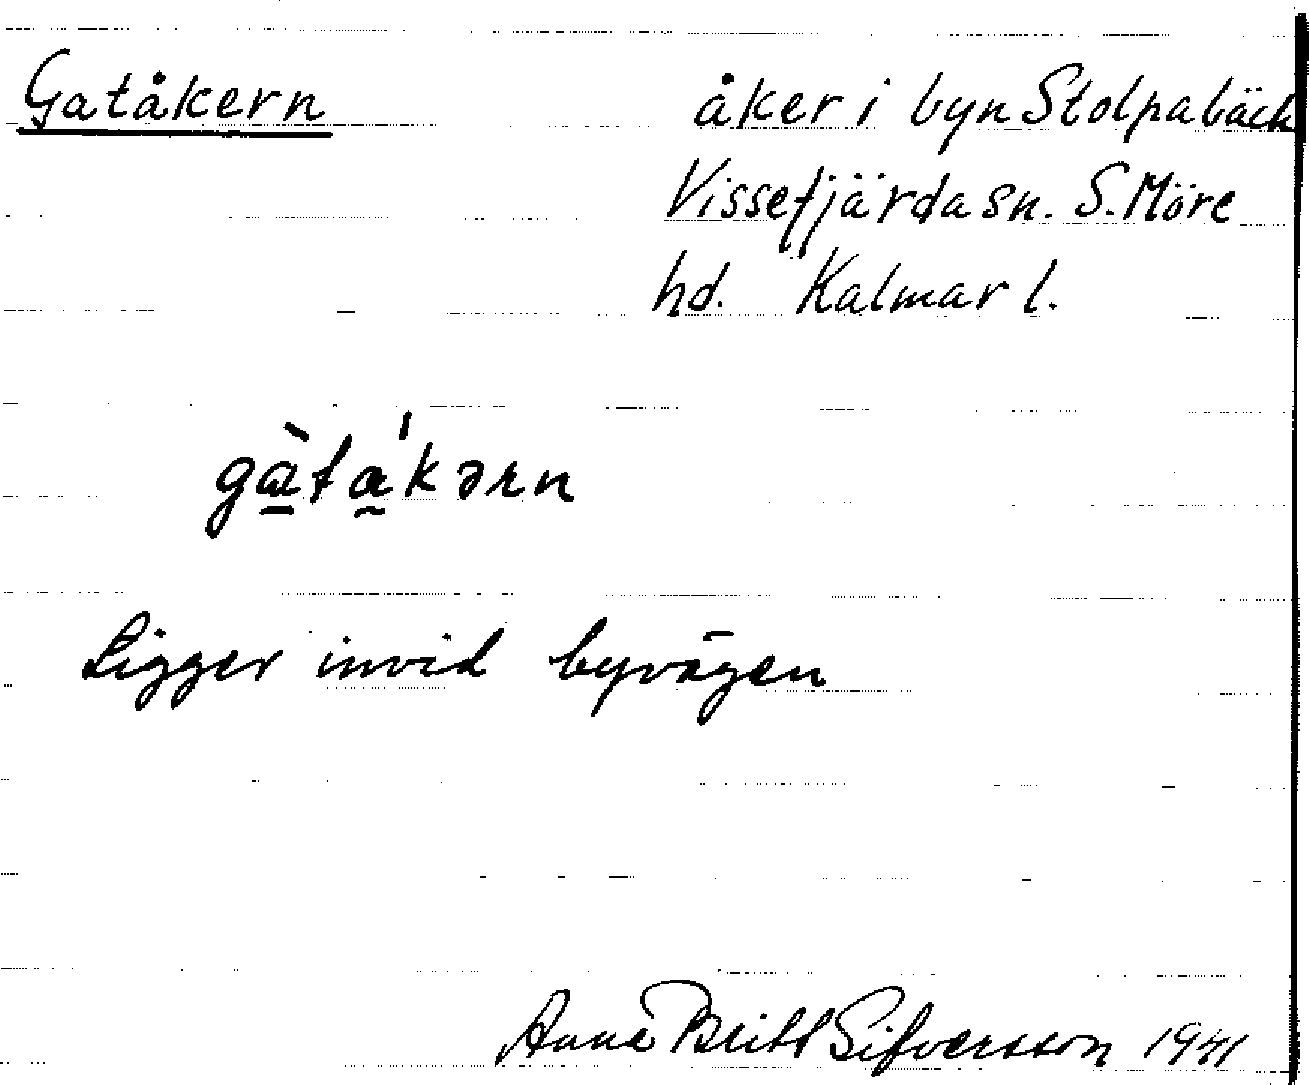 Gatåkern åker i byn Stolpabäck
Vissefjärda sn. S. Möre
hd. Kalmar l.
gàta̰'kərn
Ligger invid byvägen
Anna Britt Sifversson 1941